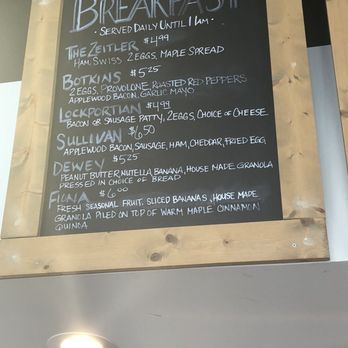 BREAKFAST
· SERVED DAILY UNTIL 11AM ·
THE ZEITLER $4.99
HAM, SWISS 2 EGGS, MAPLE SPREAD
BOTKINS $5.25
2 EGGS, PROVOLONE, ROASTED RED PEPPERS
APPLEWOOD BACON, GARLIC MAYO
LOCKPORTIAN $4.99
BACON OR SAUSAGE PATTY, 2 EGGS, CHOICE OF CHEESE
SULLIVAN $6.50
APPLEWOOD BACON, SAUSAGE, HAM, CHEDDAR, FRIED EGG,
DEWEY $5.25
PEANUT BUTTER, NUTELLA, BANANA, HOUSE MADE GRANOLA
PRESSED IN CHOICE OF BREAD
FIONA $6.00
FRESH SEASONAL FRUIT, SLICED BANANAS, HOUSE MADE
GRANOLA PILED ON TOP OF WARM MAPLE CINNAMON
QUINOA